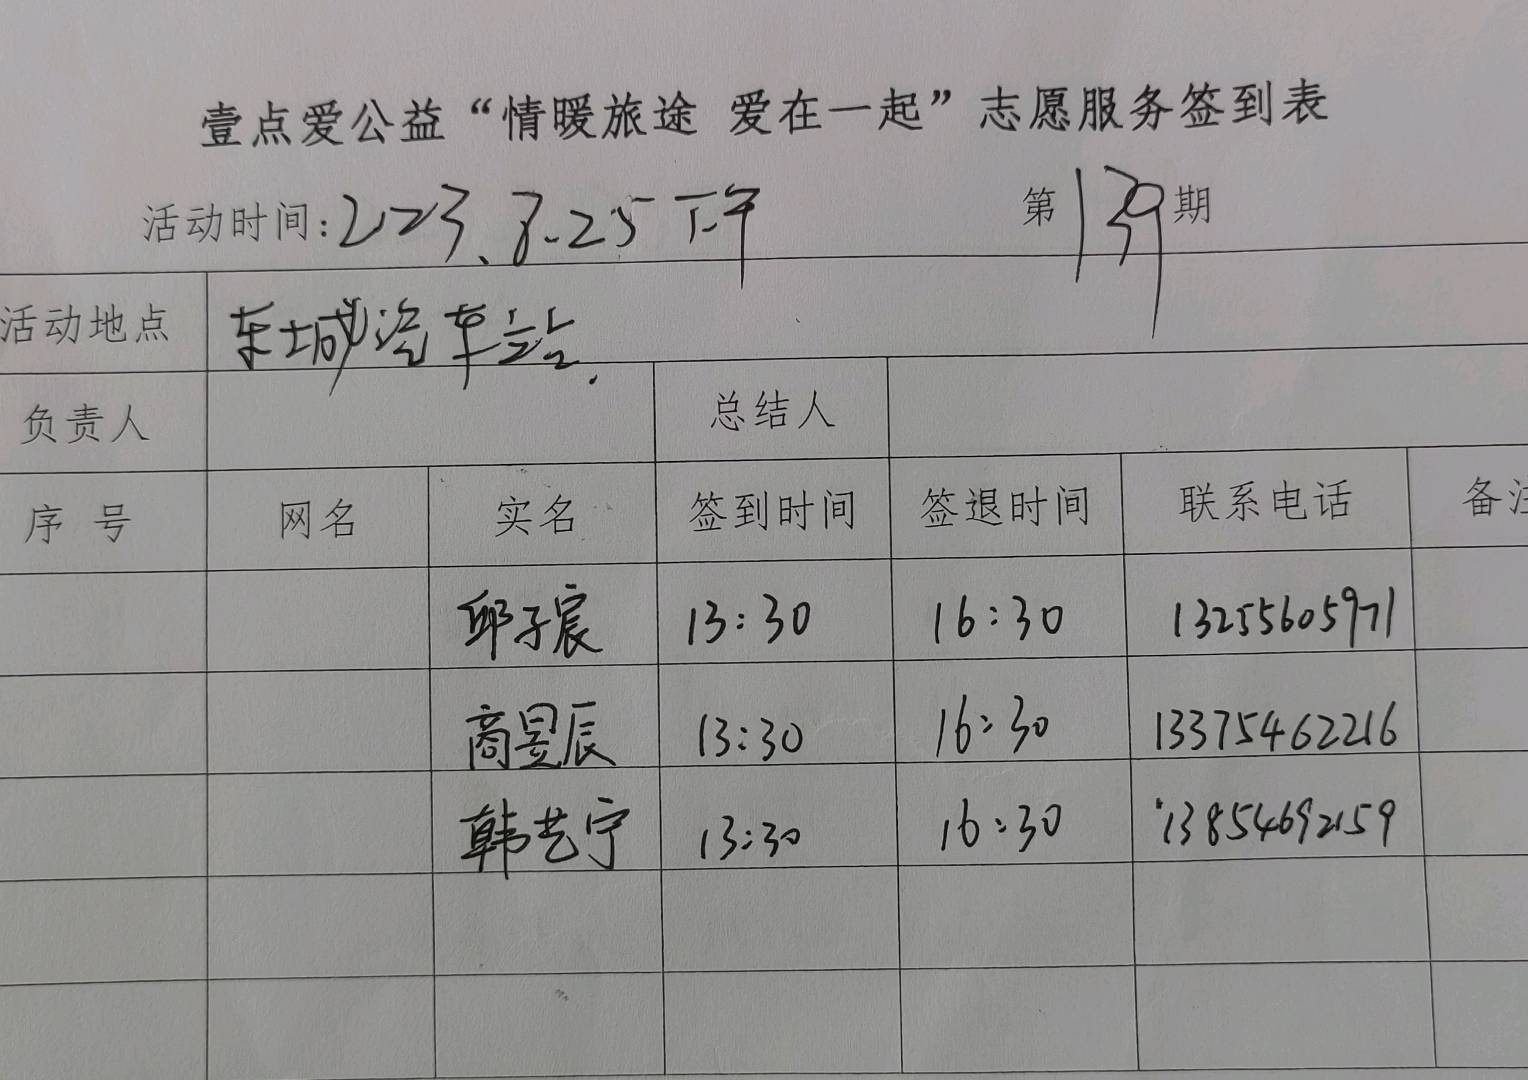 壹点爱公益“情暖旅途 爱在一起”志愿服务签到表
活动时间:2023.8.25下午 第139期
活动地点 东城汽车站.
负责人 总结人
序 号 网名 实名 签到时间 签退时间 联系电话 备注
邱子宸 13:30 16:30 13255605971
商昱辰 13:30 16:30 13375462216
韩艺宁 13:30 16:30 13854692159